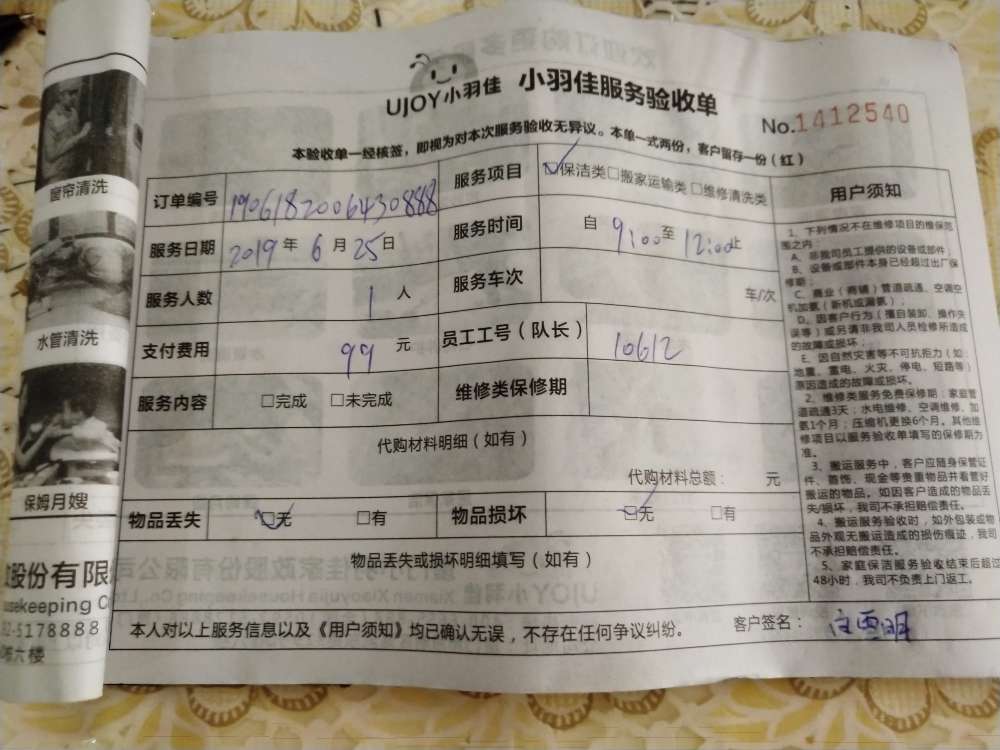 窗帘清洗
水管清洗
保姆月嫂
股份有限
usekeeping Co
5178888
六楼
UJOY小羽佳 小羽佳服务验收单
No.1412540
本验收单一经核签，即视为对本次服务验收无异议。本单一式两份，客户留存一份（红）
订单编号 1906182006430888 服务项目 ☑保洁类□搬家运输类□维修清洗类
服务日期 2019年6月25日 服务时间 自9:00至12:00止
服务人数 1人 服务车次 车/次
支付费用 99元 员工工号（队长） 10612
服务内容 □完成 □未完成 维修类保修期
代购材料明细（如有）
代购材料总额： 元
物品丢失 ☑无 □有 物品损坏 ☑无 □有
物品丢失或损坏明细填写（如有）
本人对以上服务信息以及《用户须知》均已确认无误，不存在任何争议纠纷。 客户签名：
用户须知
1、下列情况不在维修项目的维保范
围之内：
A、非我司员工提供的设备或部件；
B、设备或部件本身已经超过出厂保
修期；
C、商业（商铺）管道疏通、空调空
机加氨（新机或漏氨）；
D、因客户行为（擅自装卸、操作失
误等）或另请非我司人员检修所造成
的故障或损坏；
E、因自然灾害等不可抗拒力（如：
地震、雷电、火灾、停电、短路等）
原因造成的故障或损坏。
2、维修类服务免费保修期：家庭管
道疏通3天；水电维修、空调维修、加
氨1个月；压缩机更换6个月。其他维
修项目以服务验收单填写的保修期为
准。
3、搬运服务中，客户应随身保管证
件、首饰、现金等贵重物品并看管好
搬运的物品。如因客户造成的物品丢
失/损坏，我司不承担赔偿责任。
4、搬运服务验收时，如外包装或物
品外观无搬运造成的损伤痕迹，我司
不承担赔偿责任。
5、家庭保洁服务验收结束后超过
48小时，我司不负责上门返工。